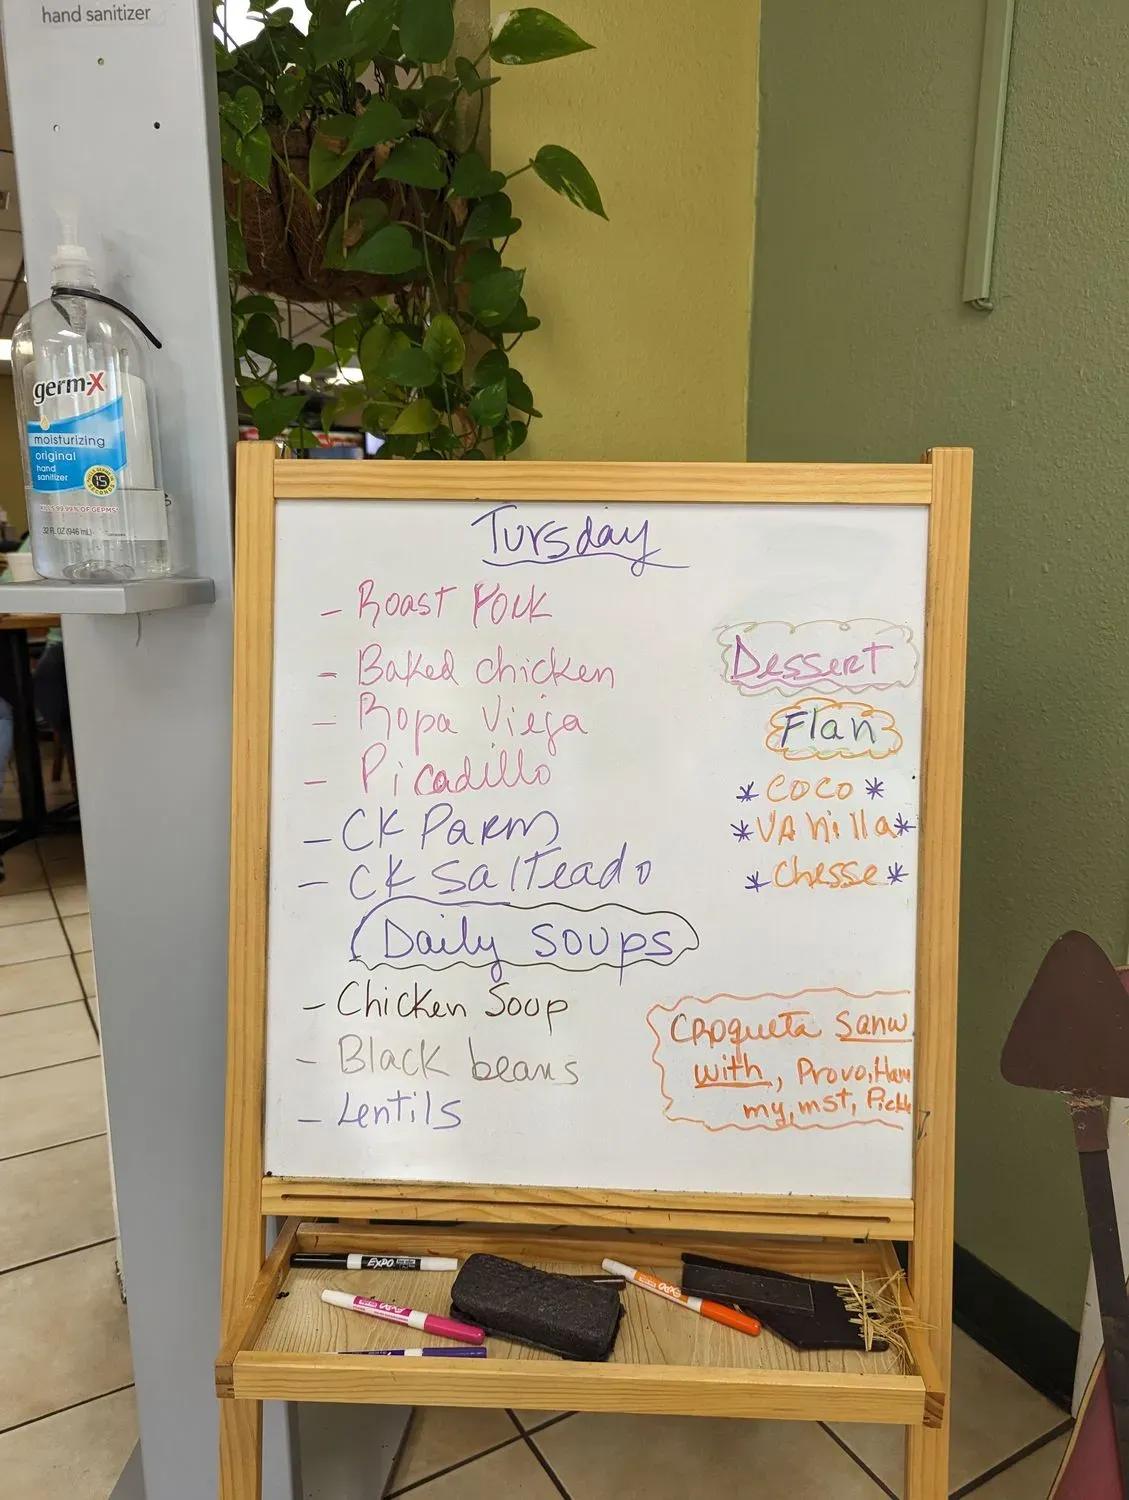 hand sanitizer
germ-X
moisturizing
original
hand
sanitizer
15
SECONDS
KILLS 99.99% OF GERMS*
32 FL OZ (946 mL)
Tursday
- Roast Pork
- Baked chicken
- Ropa Vieja
- Picadillo
- CK Parm
- CK Salteado
Daily soups
- Chicken Soup
- Black beans
- Lentils
Dessert
Flan
* coco *
* VAnilla *
* chesse *
Croqueta Sanw
with, Provo, Ham
my, mst, Pickle
EXPO
EXPO
EXPO